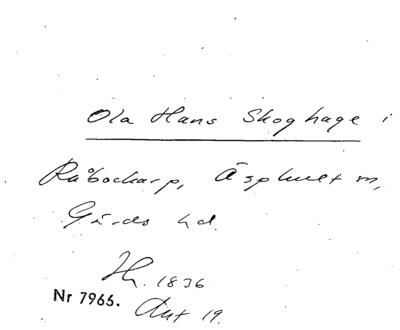 Ola Hans Skoghage i
Råbockarp, Äsphult sn,
Gärds hd.
Th. 1836
Nr 7965. Aut 19.